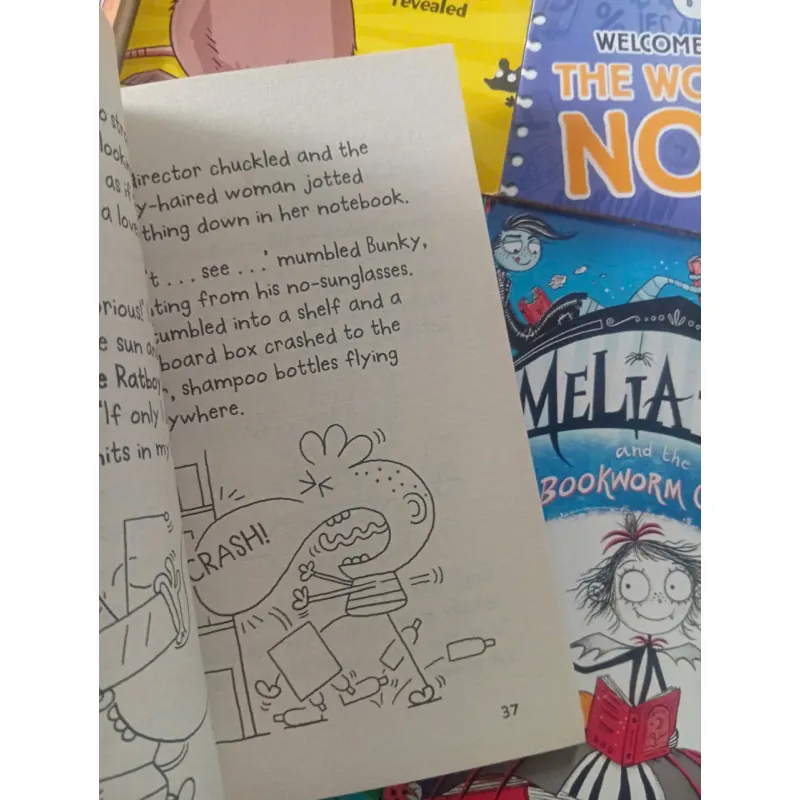 revealed
WELCOME
THE WO
NO
director chuckled and the
y-haired woman jotted
thing down in her notebook.
't . . . see . . .' mumbled Bunky,
ting from his no-sunglasses.
umbled into a shelf and a
board box crashed to the
, shampoo bottles flying
ywhere.
CRASH!
37
o str
lookin
as if
a love
orious!'
e sun a
e Ratboy
'If only
hits in my
MELIA
and the
BOOKWORM